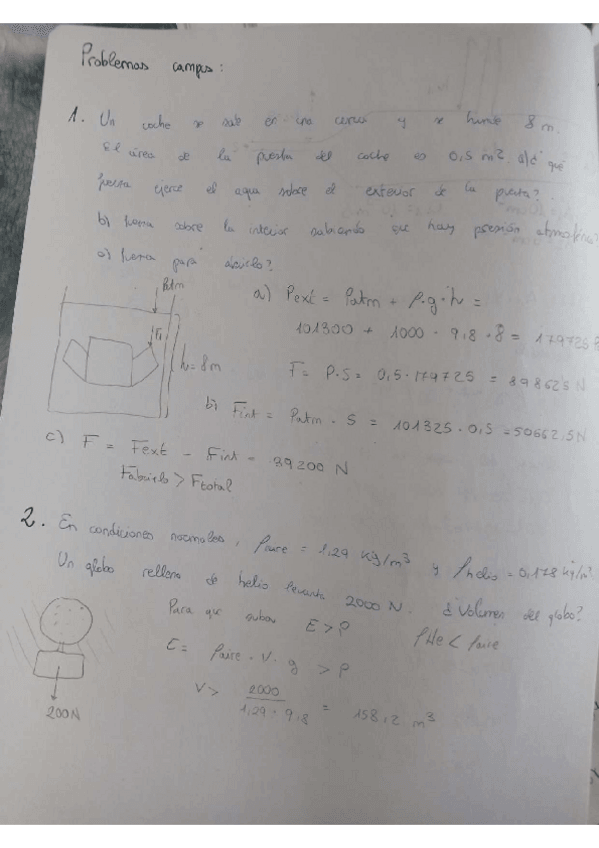 Problemas campus:
1. Un coche se sale en una curva y se hunde 8 m.
El área de la puerta del coche es 0,5 m². a) ¿ qué
fuerza ejerce el agua sobre el exterior de la puerta?
b) fuerza sobre la interior sabiendo que hay presión atmosférica?
c) fuerza para abrirlo?
Patm
h = 8m
a) Pext = Patm + ρ·g·h =
101300 + 1000 · 9,8 · 8 = 179725 P
F = P·S = 0,5·179725 = 89862,5 N
b) Fint = Patm · S = 101325 · 0,5 = 50662,5N
c) F = Fext - Fint = 39200 N
Fabrirlo > Ftotal
2. En condiciones normales, ρaire = 1,29 kg/m³ y ρhelio = 0,178 kg/m³
Un globo relleno de helio levanta 2000 N. ¿ Volumen del globo?
Para que suba E > P
ρHe < ρaire
E = ρaire · V · g > P
V > 2000 / 1,29 · 9,8 = 158,2 m³
200N